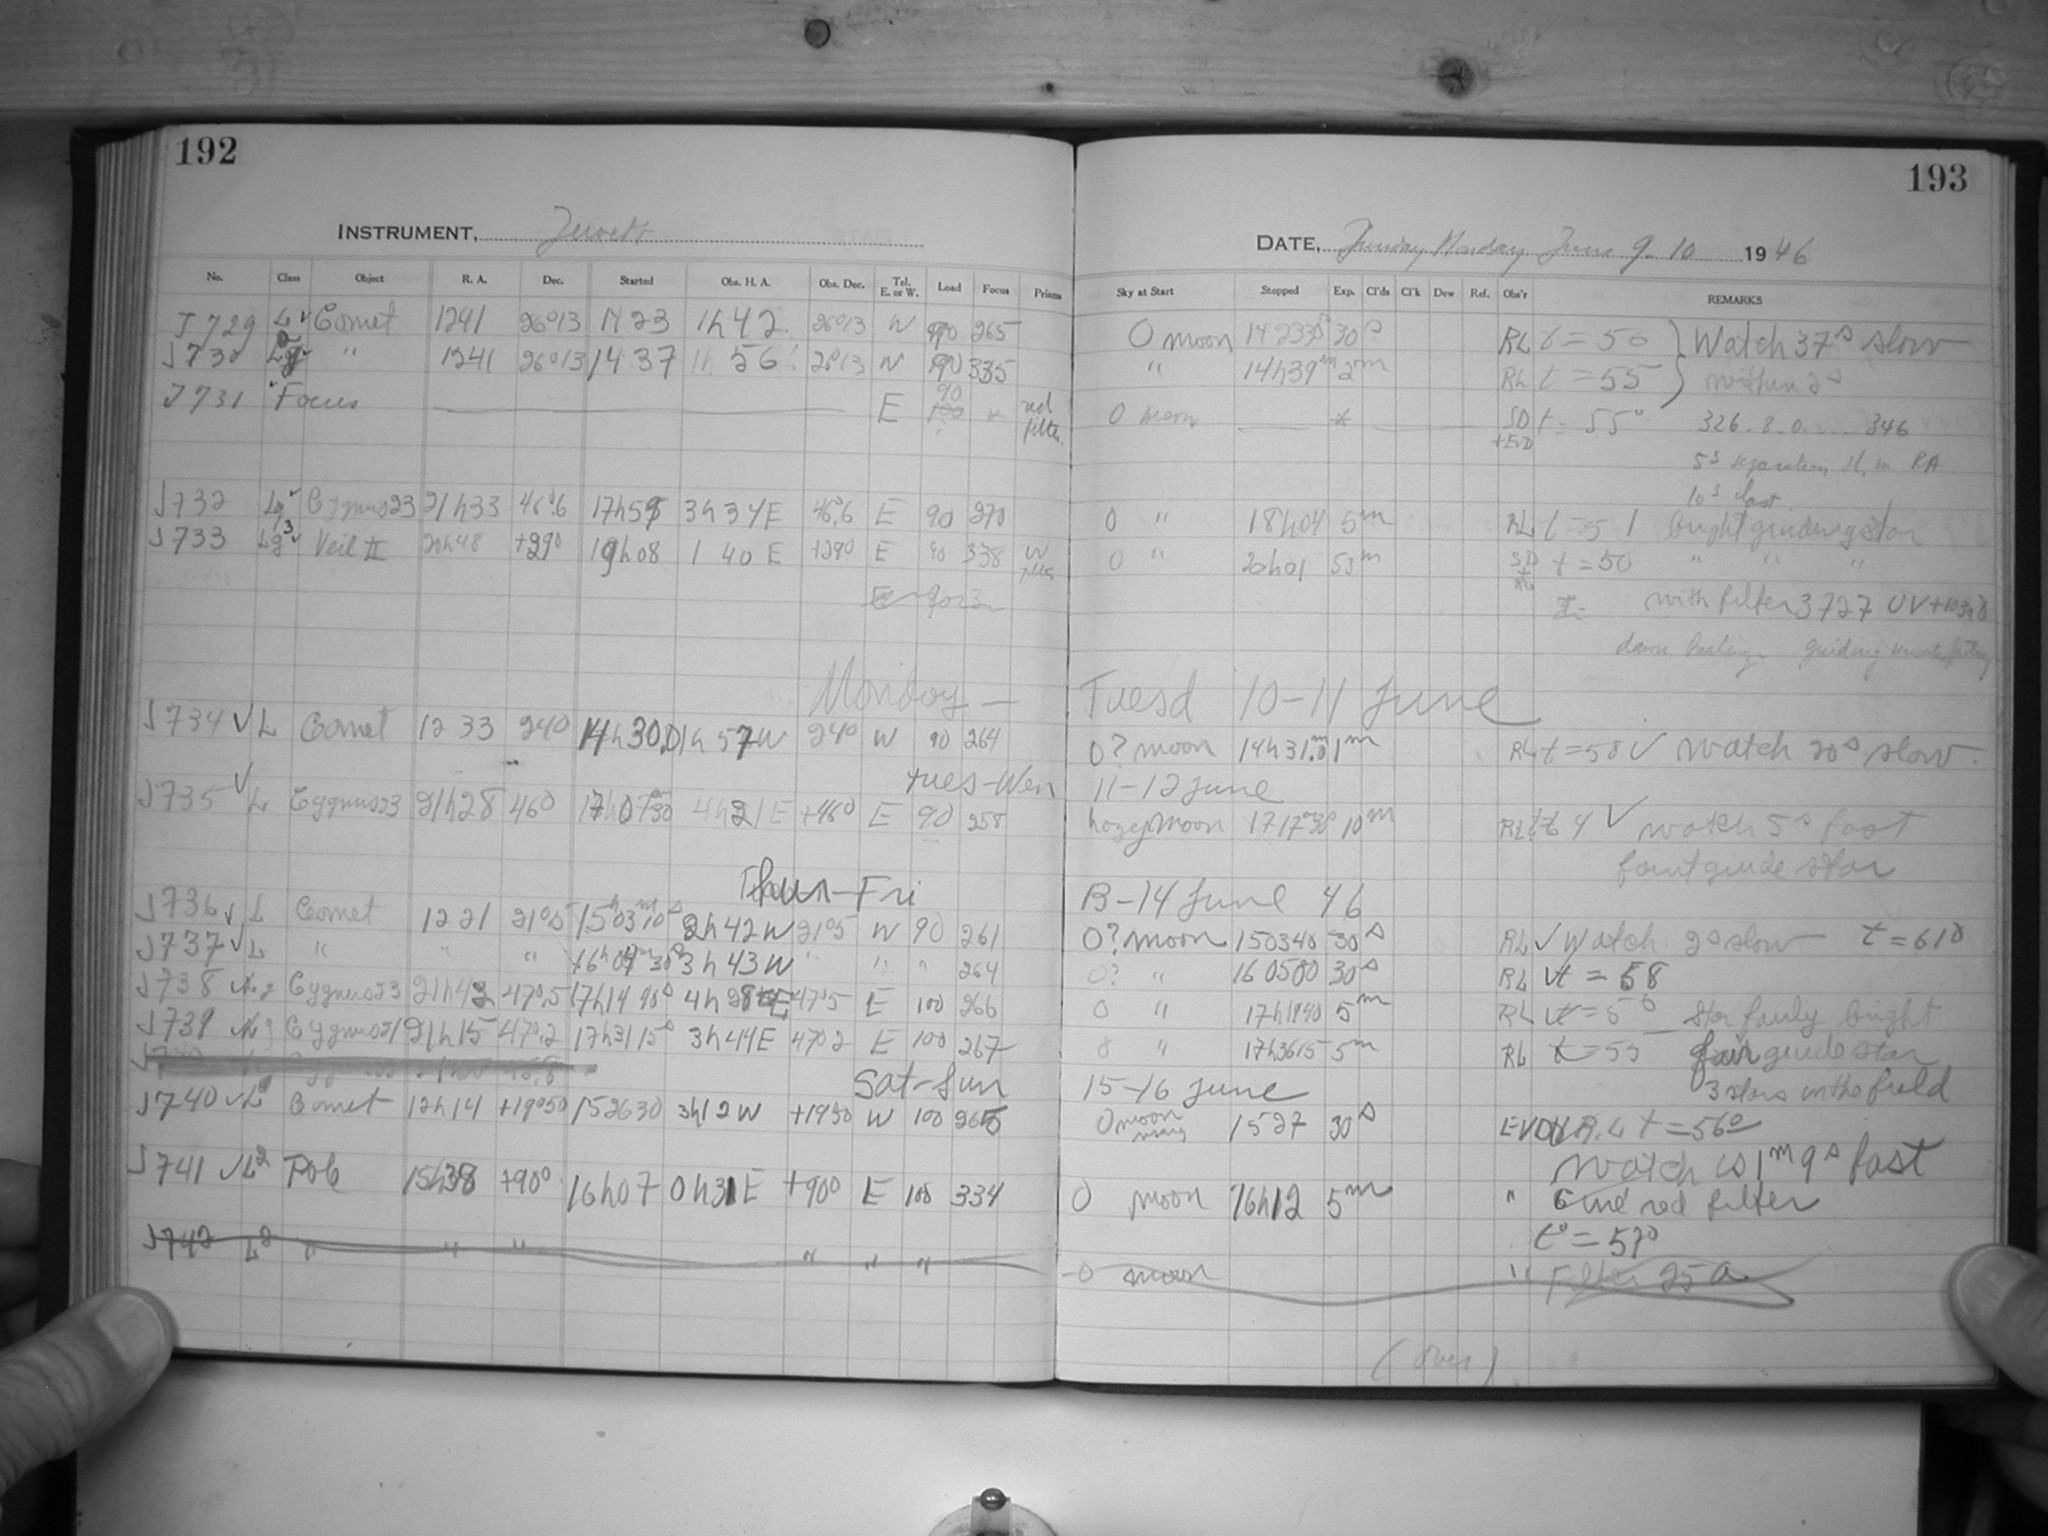 192
193
INSTRUMENT, Jewett
DATE, Sunday Monday June 9-10 1946
No. Class Object R. A. Dec. Started Obs. H. A. Obs. Dec. Tel. E. or W. Load Focus Prisms Sky at Start Stopped Exp. Cl'ds Cl'k Dew Ref. Obs'r REMARKS
J729 L Comet 1241 26°13 1423 1h42 26°13 W 90 265 0 moon 142330s 30s RL t=56 Watch 37s slow
J730 " 1241 26°13 14 37 1h 56 2613 W 90 335 " 14h39m 2m RL t=55 within 2s
J731 Focus E 90 red filter 0 moon SD t=55° 326.8.0....346
+EvD 5s separation in RA
10s last
J732 Cygnus23 21h33 46°6 17h59 3h34E 46°6 E 90 270 0 " 18h04 5m RL t=51 bright guiding star
J733 Veil II 20h48 +29° 19h08 1 40 E +29° E 90 338 UV filter 0 " 20h01 53m t=50 " " "
with filter 3727 UV+
dawn guiding
Monday - Tuesd 10-11 June
J734 ✓ L Comet 12 33 240 14h30,0 1h57W 240 W 90 264 0? moon 14h31.0 1m RL t=58 ✓ Watch 20s slow.
Tues-Wen 11-12 June
J735 ✓ L Cygnus23 21h28 460 17h0730 4h21E +460 E 90 258 hazey moon 171730 10m RL ✓ watch 5s fast
faint guide star
Thur-Fri 13-14 June 46
J736 ✓ L Comet 12 21 21°5 15h03m10s 2h42W 21°5 W 90 261 0? moon 150340 30s RL ✓ Watch 2s slow t=610
J737 ✓ L " " " 16h04m30s 3h43W " " " 264 0? " 160500 30s RL ✓ t=58
J738 Cygnus23 21h42 470.5 17h14 40s 4h28E 4705 E 100 266 0 " 17h1940 5m RL t=56 star fairly bright
J739 Cygnus21 21h15 470.2 17h3115s 3h44E 4702 E 100 267 0 " 17h3615 5m RL t=55 fair guide star
3 stars in the field
Sat-Sun 15-16 June
J740 Comet 12h14 +19°50 152630 3h12W +1950 W 100 265 0 moon rising 1527 30s R.L t=56°
Watch is 1m9s fast
J741 ✓ L2 Pole 15h38 +90° 16h07 0h31E +90° E 100 334 0 moon 16h12 5m " Cine red filter
t°=57°
J742 L2 " " " " " " 0 moon " Filter 25 a
(over)